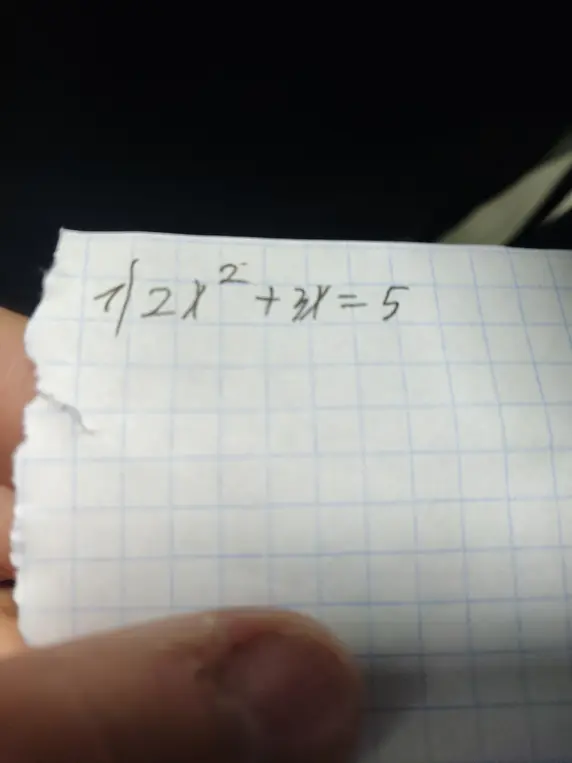 1) 2x² + 3x = 5